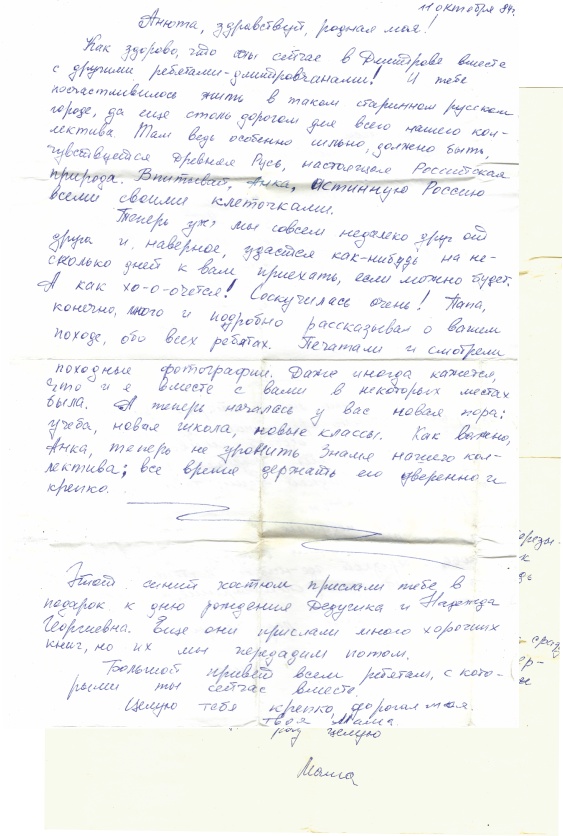 11 октября 84г.
Анюта, здравствуй, родная моя!
Как здорово, что ты сейчас в Дмитрове вместе
с другими ребятами-дмитровчанами! И тебе
посчастливилось жить в таком старинном русском
городе, да еще столь дорогом для всего нашего кол-
лектива. Там ведь особенно сильно, должно быть,
чувствуется Древняя Русь, настоящая Российская
природа. Впитывай, Анка, Истинную Россию
всеми своими клеточками.
Теперь уж мы совсем недалеко друг от
друга и, наверное, удастся как-нибудь на не-
сколько дней к вам приехать, если можно будет.
А как хо-о-очется! Соскучилась очень! Папа,
конечно, много и подробно рассказывал о вашем
походе, обо всех ребятах. Печатали и смотрели
походные фотографии. Даже иногда кажется,
что и я вместе с вами в некоторых местах
была. А теперь началась у вас новая пора:
учеба, новая школа, новые классы. Как важно,
Анка, теперь не уронить Знамя нашего кол-
лектива; все время держать его уверенно и
крепко.
Этот синий костюм прислали тебе в
подарок к дню рождения Дедушка и Надежда
Георгиевна. Еще они прислали много хороших
книг, но их мы передадим потом.
Большой привет всем ребятам, с кото-
рыми ты сейчас вместе.
Целую тебя крепко, дорогая моя.
Твоя Мама.
целую
Мама